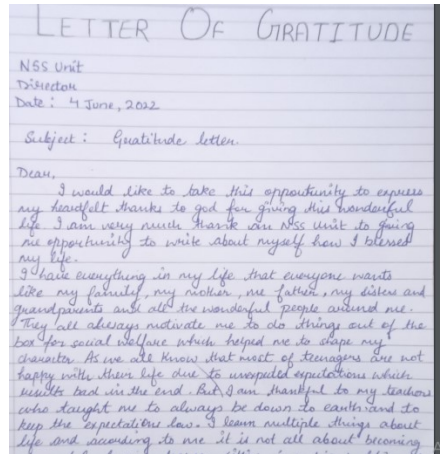 LETTER OF GRATITUDE
NSS Unit
Director
Date : 4 June, 2022
Subject : Gratitude letter.
Dear,
I would like to take this opportunity to express
my heartfelt thanks to god for giving this wonderful
life. I am very much thank an NSS unit to giving
me opportunity to write about myself how I blessed
my life.
I have everything in my life that everyone wants
like my family, my mother, me father, my sisters and
grandparents and all the wonderful people around me.
They all always motivate me to do things out of the
box for social welfare which helped me to shape my
character. As we all know that most of teenagers are not
happy with their life due to unexpected expectations which
results bad in the end. But, I am thankful to my teachers
who taught me to always be down to earth and to
keep the expectations low. I learn multiple things about
life and according to me it is not all about becoming